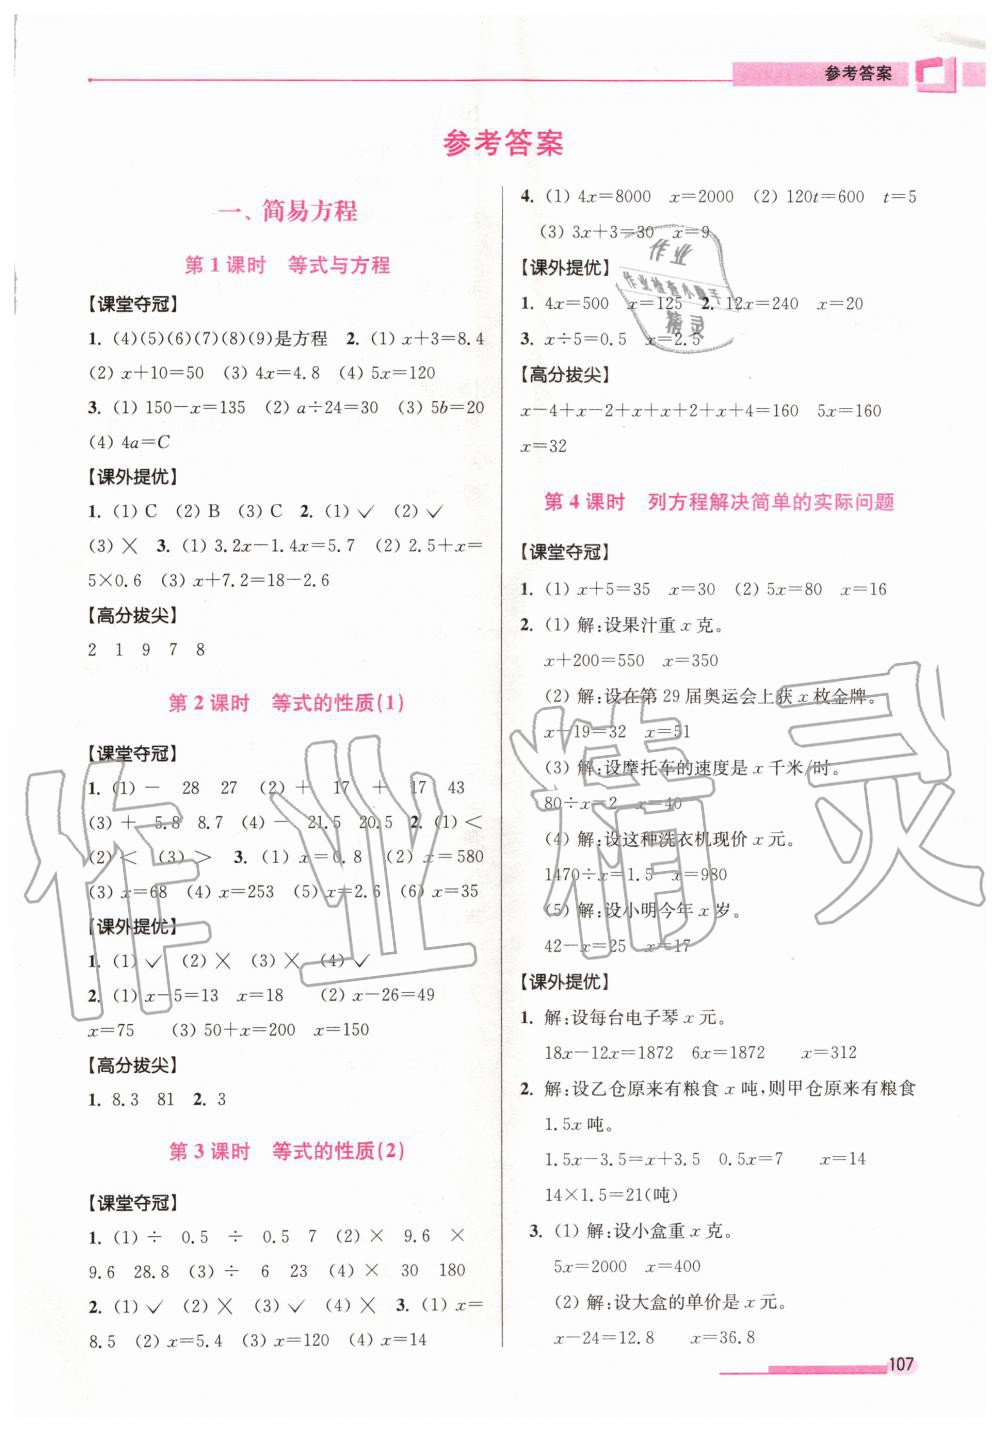 参考答案
参考答案
一、简易方程
第1课时 等式与方程
【课堂夺冠】
1. (4)(5)(6)(7)(8)(9)是方程 2. (1) x+3=8.4
(2) x+10=50 (3) 4x=4.8 (4) 5x=120
3. (1) 150-x=135 (2) a÷24=30 (3) 5b=20
(4) 4a=C
【课外提优】
1. (1) C (2) B (3) C 2. (1) ✓ (2) ✓
(3) ✕ 3. (1) 3.2x-1.4x=5.7 (2) 2.5+x=
5×0.6 (3) x+7.2=18-2.6
【高分拔尖】
2 1 9 7 8
第2课时 等式的性质(1)
【课堂夺冠】
1. (1) - 28 27 (2) + 17 + 17 43
(3) + 5.8 8.7 (4) - 21.5 20.5 2. (1) <
(2) < (3) > 3. (1) x=0.8 (2) x=580
(3) x=68 (4) x=253 (5) x=2.6 (6) x=35
【课外提优】
1. (1) ✓ (2) ✕ (3) ✕ (4) ✓
2. (1) x-5=13 x=18 (2) x-26=49
x=75 (3) 50+x=200 x=150
【高分拔尖】
1. 8.3 81 2. 3
第3课时 等式的性质(2)
【课堂夺冠】
1. (1) ÷ 0.5 ÷ 0.5 7 (2) × 9.6 ×
9.6 28.8 (3) ÷ 6 23 (4) × 30 180
2. (1) ✓ (2) ✕ (3) ✓ (4) ✕ 3. (1) x=
8.5 (2) x=5.4 (3) x=120 (4) x=14
4. (1) 4x=8000 x=2000 (2) 120t=600 t=5
(3) 3x+3=30 x=9
【课外提优】
1. 4x=500 x=125 2. 12x=240 x=20
3. x÷5=0.5 x=2.5
【高分拔尖】
x-4+x-2+x+x+2+x+4=160 5x=160
x=32
第4课时 列方程解决简单的实际问题
【课堂夺冠】
1. (1) x+5=35 x=30 (2) 5x=80 x=16
2. (1) 解:设果汁重 x 克。
x+200=550 x=350
(2) 解:设在第 29 届奥运会上获 x 枚金牌。
x-19=32 x=51
(3) 解:设摩托车的速度是 x 千米/时。
80÷x=2 x=40
(4) 解:设这种洗衣机现价 x 元。
1470÷x=1.5 x=980
(5) 解:设小明今年 x 岁。
42-x=25 x=17
【课外提优】
1. 解:设每台电子琴 x 元。
18x-12x=1872 6x=1872 x=312
2. 解:设乙仓原来有粮食 x 吨,则甲仓原来有粮食
1.5x 吨。
1.5x-3.5=x+3.5 0.5x=7 x=14
14×1.5=21(吨)
3. (1) 解:设小盒重 x 克。
5x=2000 x=400
(2) 解:设大盒的单价是 x 元。
x-24=12.8 x=36.8
107
作业
作业检查小助手
精灵
作业精灵